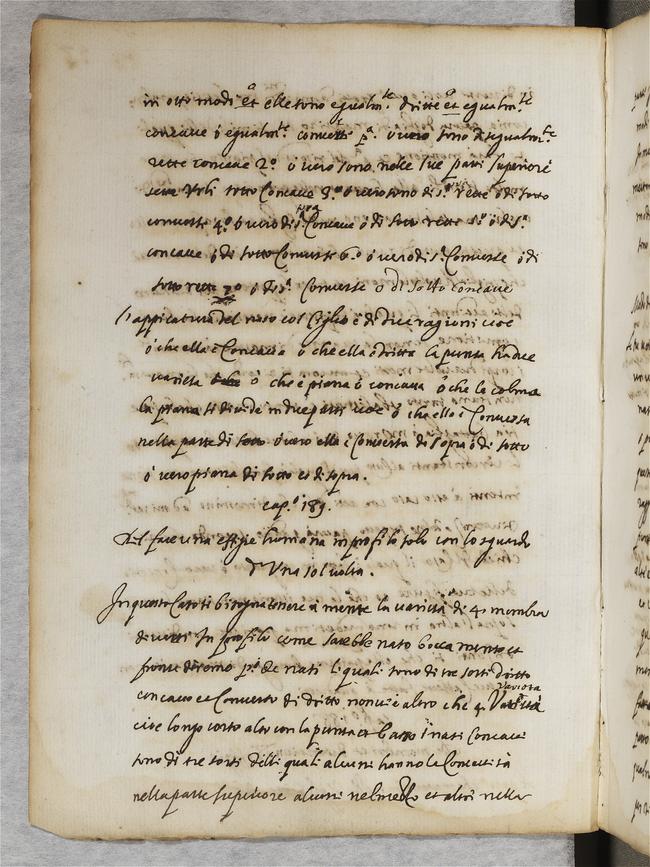 in otto modi et elle sono egualm.te dritte et egualm.te
concaue ò egualm.te conuesse p.a ò uero sono disegualm.te
rette concaue 2.o ò uero sono nelle sue parti superiori
rette
concaue ò di sotto conuesse 6.o ò uero di s.a Conuesse ò di
sotto rette 7.o ò di s.a Conuesse ò di sotto concaue
l'appicatura del naso col Ciglio è di due ragioni cioè
ò che ella è Concaua ò che ella è dritta la punta hà due
uarietà ò che è piana ò concaua ò che la colma
la piana si diuide in due parti cioè ò che ella è Conuessa
nella parte di sotto ò uero ella è Conuessa di sopra ò di sotto
ò uero piana di sotto et di sopra.
cap.o 189.
Del fare una effigie humana in profilo solo con lo sguardo
d'Vna sol uolta.
In questo Caso ti bisogna tenere à mente la uarietà di 4 membra
diuersi In profilo come sarebbe naso bocca mento et
fronte diremo p.a de nasi li quali sono di tre sorti dritto
concauo et Conuesso di dritto non ui è altro che 4 Varietà
cioè longo corto alto con la punta et basso i nasi Concaui
sono di tre sorti delli quali alcuni hanno la Concauità
nella parte superiore alcuni nel mezzo et altri nella